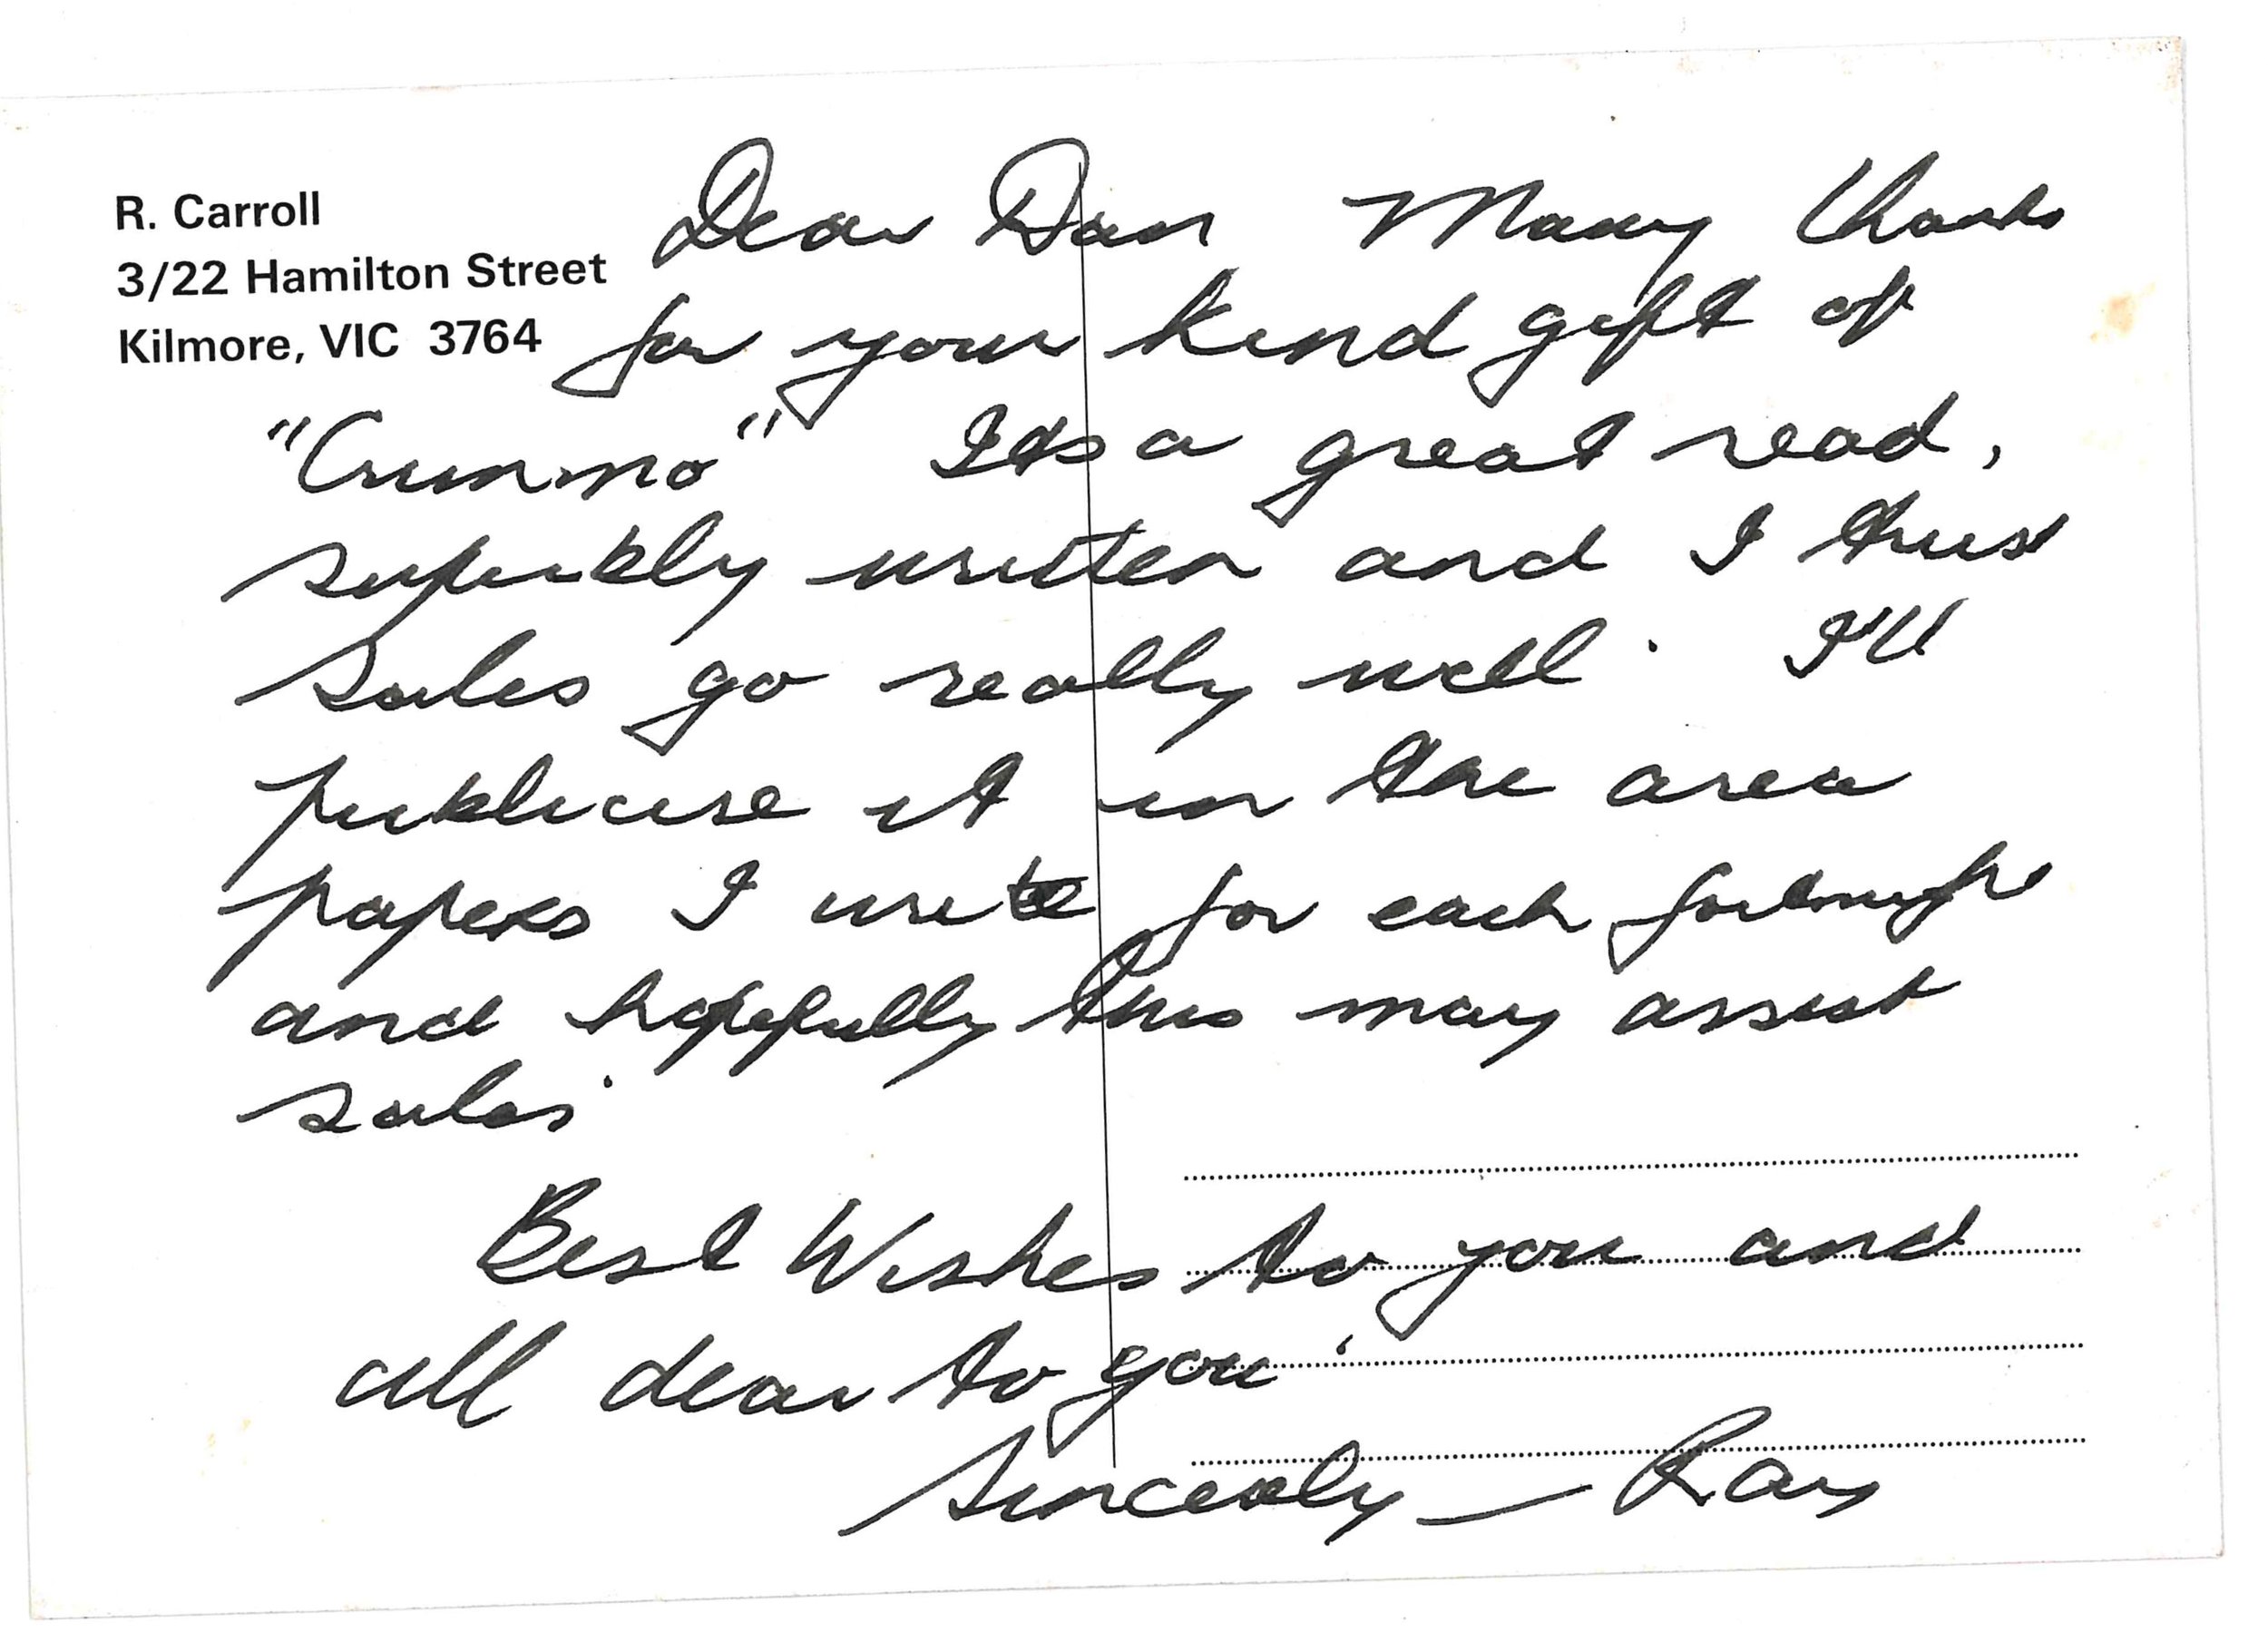 R. Carroll
3/22 Hamilton Street
Kilmore, VIC 3764
Dear Dan Many thanks
for your kind gift of
"Crummo" Its a great read,
superbly written and I trust
sales go really well. I'll
publicise it in the area
papers I write for each
and hopefully this may assist
sales.
Best Wishes to you and
all dear to you.
Sincerely — Ray